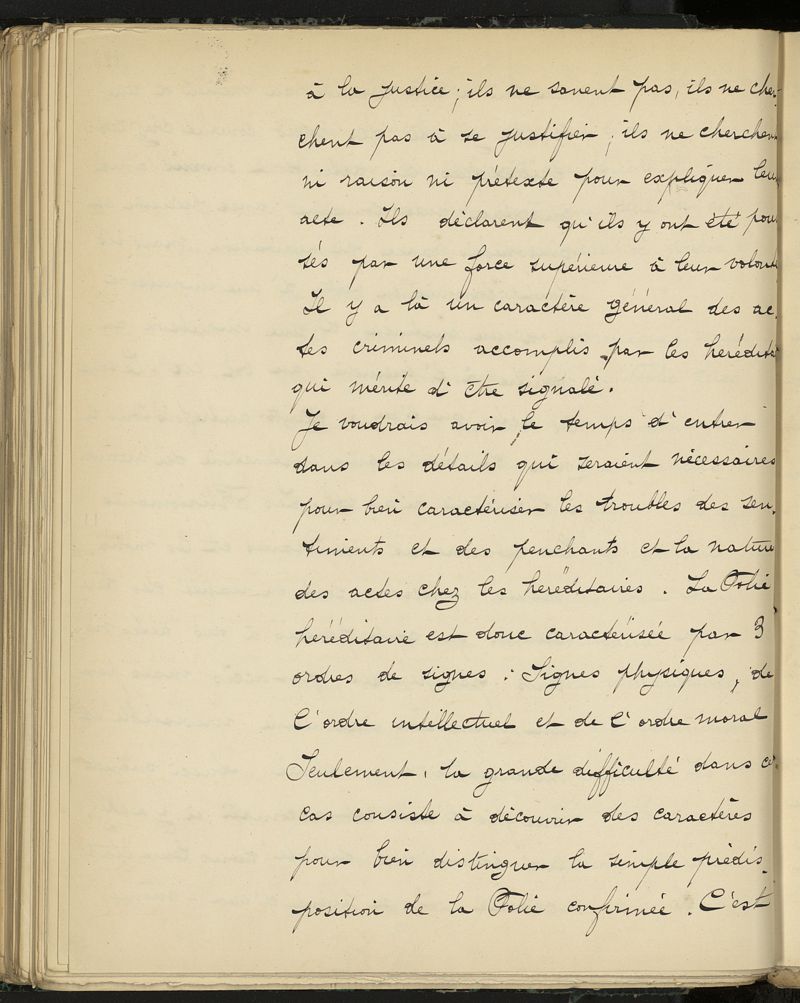 à la justice; ils ne savent pas, ils ne cher-
chent pas à se justifier; ils ne cherchent
ni raison ni prétexte pour expliquer leur
acte. Ils déclarent qu'ils y ont été pous
sés par une force supérieure à leur volonté
Il y a là un caractère général des ac-
tes criminels accomplis par les hérédita
qui mérite d'être signalé.
Je voudrais avoir le temps d'entrer
dans les détails qui seraient nécessaires
pour bien caractériser les troubles des sen-
timents et des penchants et la nature
des actes chez les héréditaires. La Folie
héréditaire est donc caractérisée par 3
ordres de signes : Signes physiques, de
l'ordre intellectuel et de l'ordre moral
Seulement, la grande difficulté dans ce
cas consiste à découvrir des caractères
pour bien distinguer la simple prédis-
position de la Folie confirmée. C'est